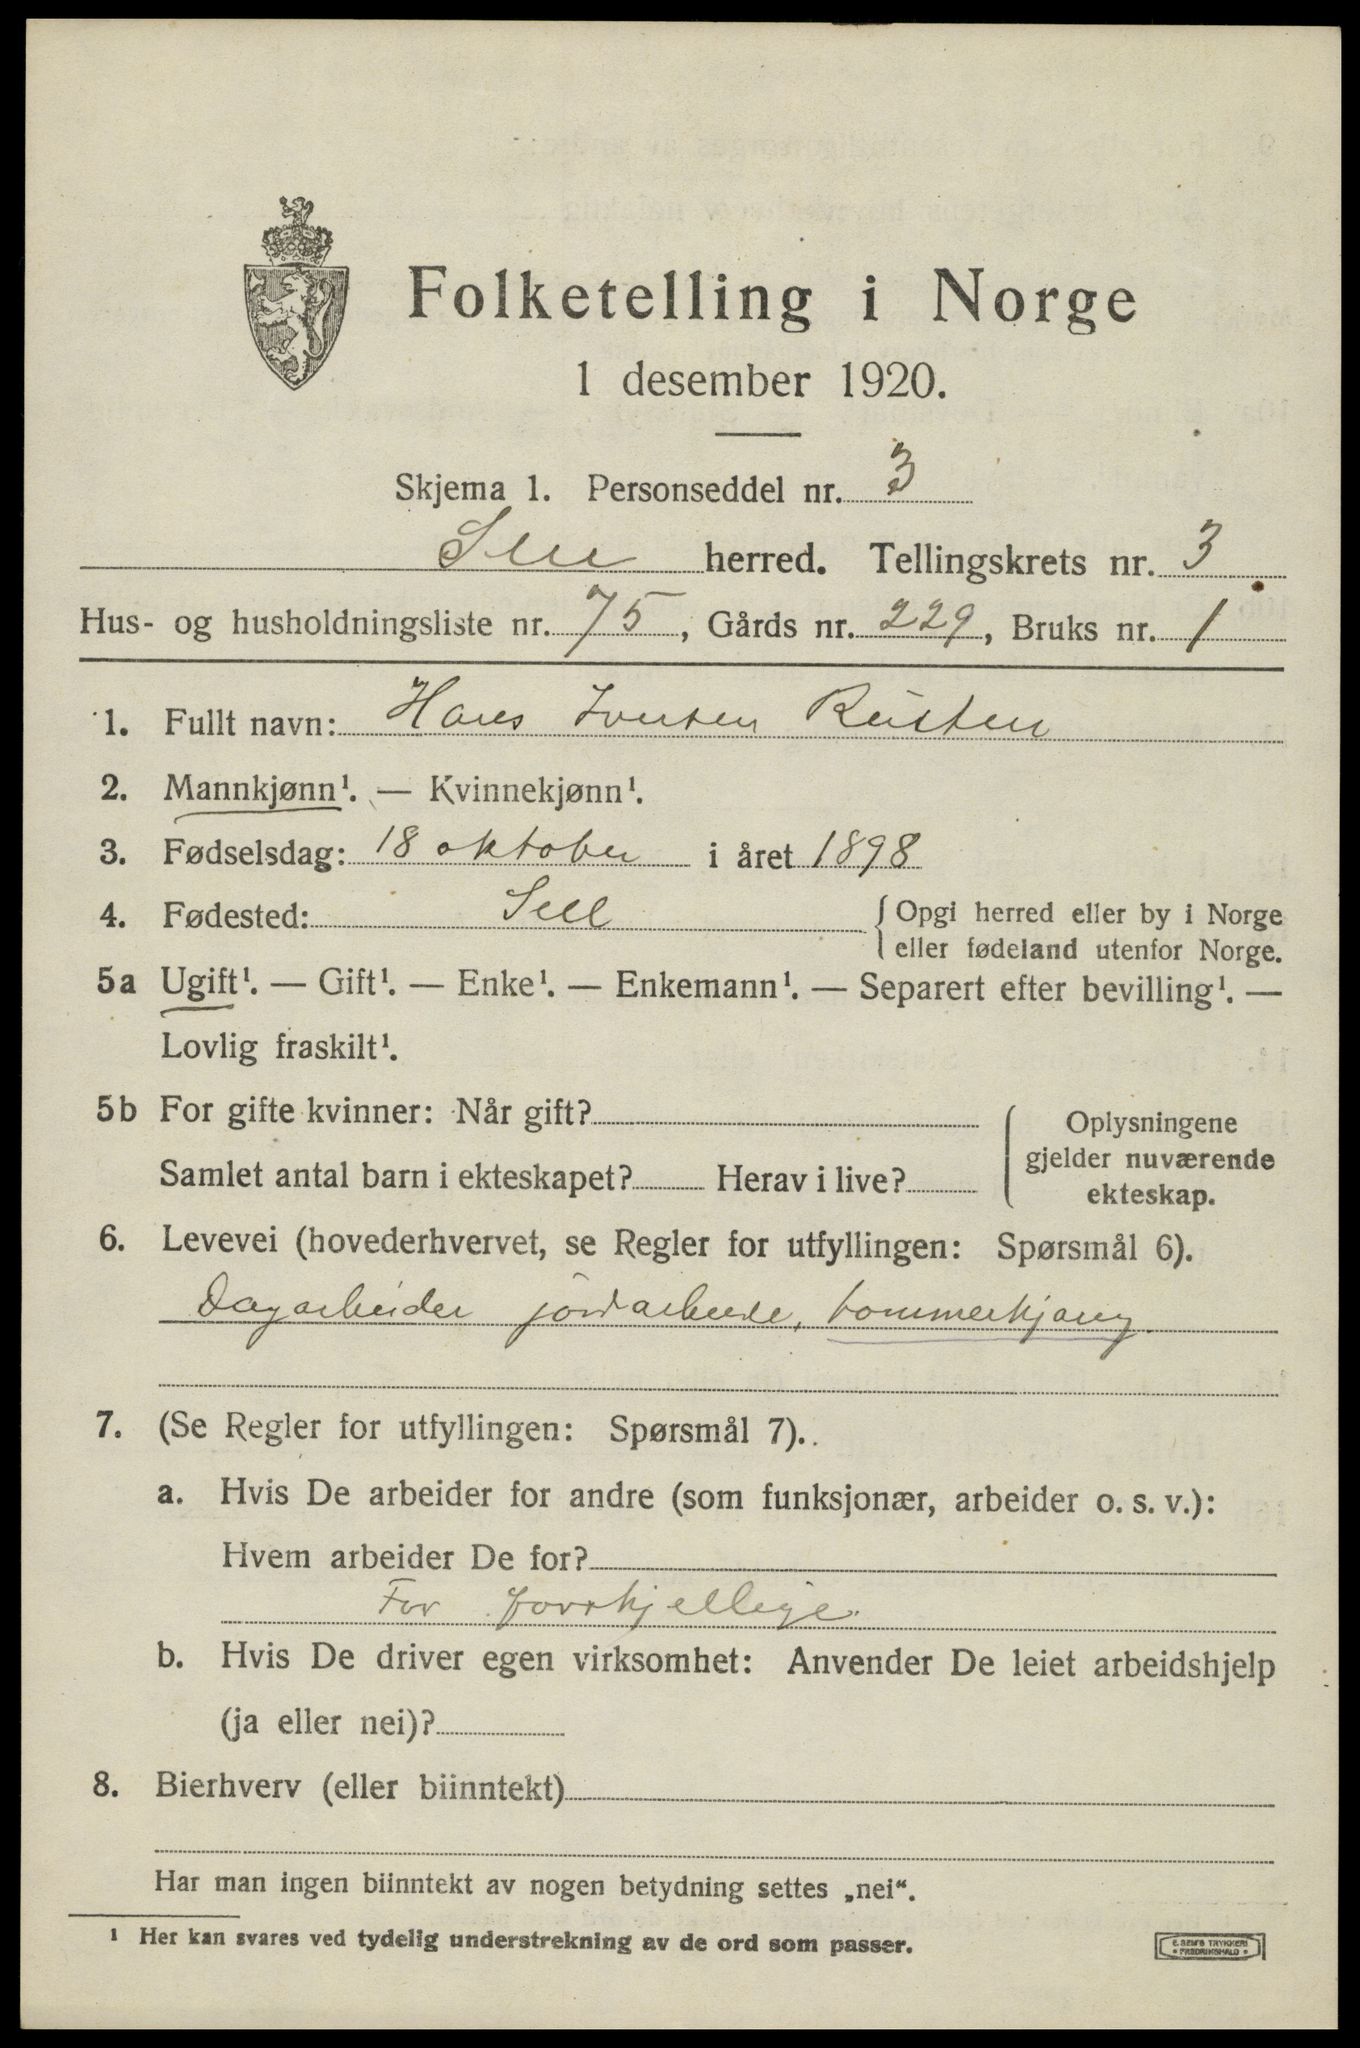 Folketelling i Norge
1 desember 1920.
Skjema 1. Personseddel nr. 3
Sell herred. Tellingskrets nr. 3
Hus- og husholdningsliste nr. 75, Gårds nr. 229, Bruks nr. 1
1. Fullt navn: Hans Iversen Rusten
2. Mannkjønn¹. — Kvinnekjønn¹.
3. Fødselsdag: 18 oktober i året 1898
4. Fødested: Sell { Opgi herred eller by i Norge
eller fødeland utenfor Norge.
5a Ugift¹. — Gift¹. — Enke¹. — Enkemann¹. — Separert efter bevilling¹. —
Lovlig fraskilt¹.
5b For gifte kvinner: Når gift?
Oplysningene
gjelder nuværende
ekteskap.
Samlet antal barn i ekteskapet? Herav i live?
6. Levevei (hovederhvervet, se Regler for utfyllingen: Spørsmål 6).
Dagarbeider jordarbeide, tommerkjøring
7. (Se Regler for utfyllingen: Spørsmål 7).
a. Hvis De arbeider for andre (som funksjonær, arbeider o. s. v.):
Hvem arbeider De for?
For forskjellige.
b. Hvis De driver egen virksomhet: Anvender De leiet arbeidshjelp
(ja eller nei)?
8. Bierhverv (eller biinntekt)
Har man ingen biinntekt av nogen betydning settes „nei“.
¹ Her kan svares ved tydelig understrekning av de ord som passer.
E. SEM'S TRYKKERI
• FREDRIKSHALD •